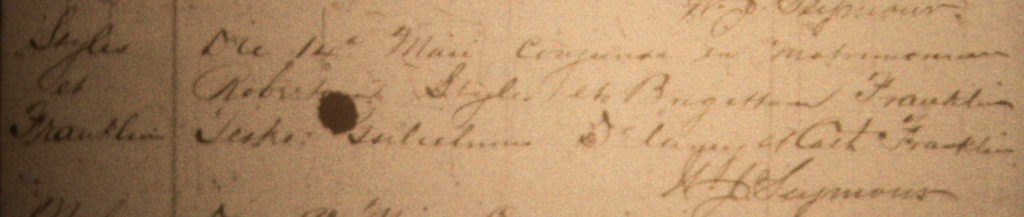 W. J. Seymour.
Styles Die 14ª Maii conjunxi in matrimonium
et Robertum Styles et Brigettam Franklin
Franklin Testes: Gulielmus et Cath. Franklin
W. J. Seymour